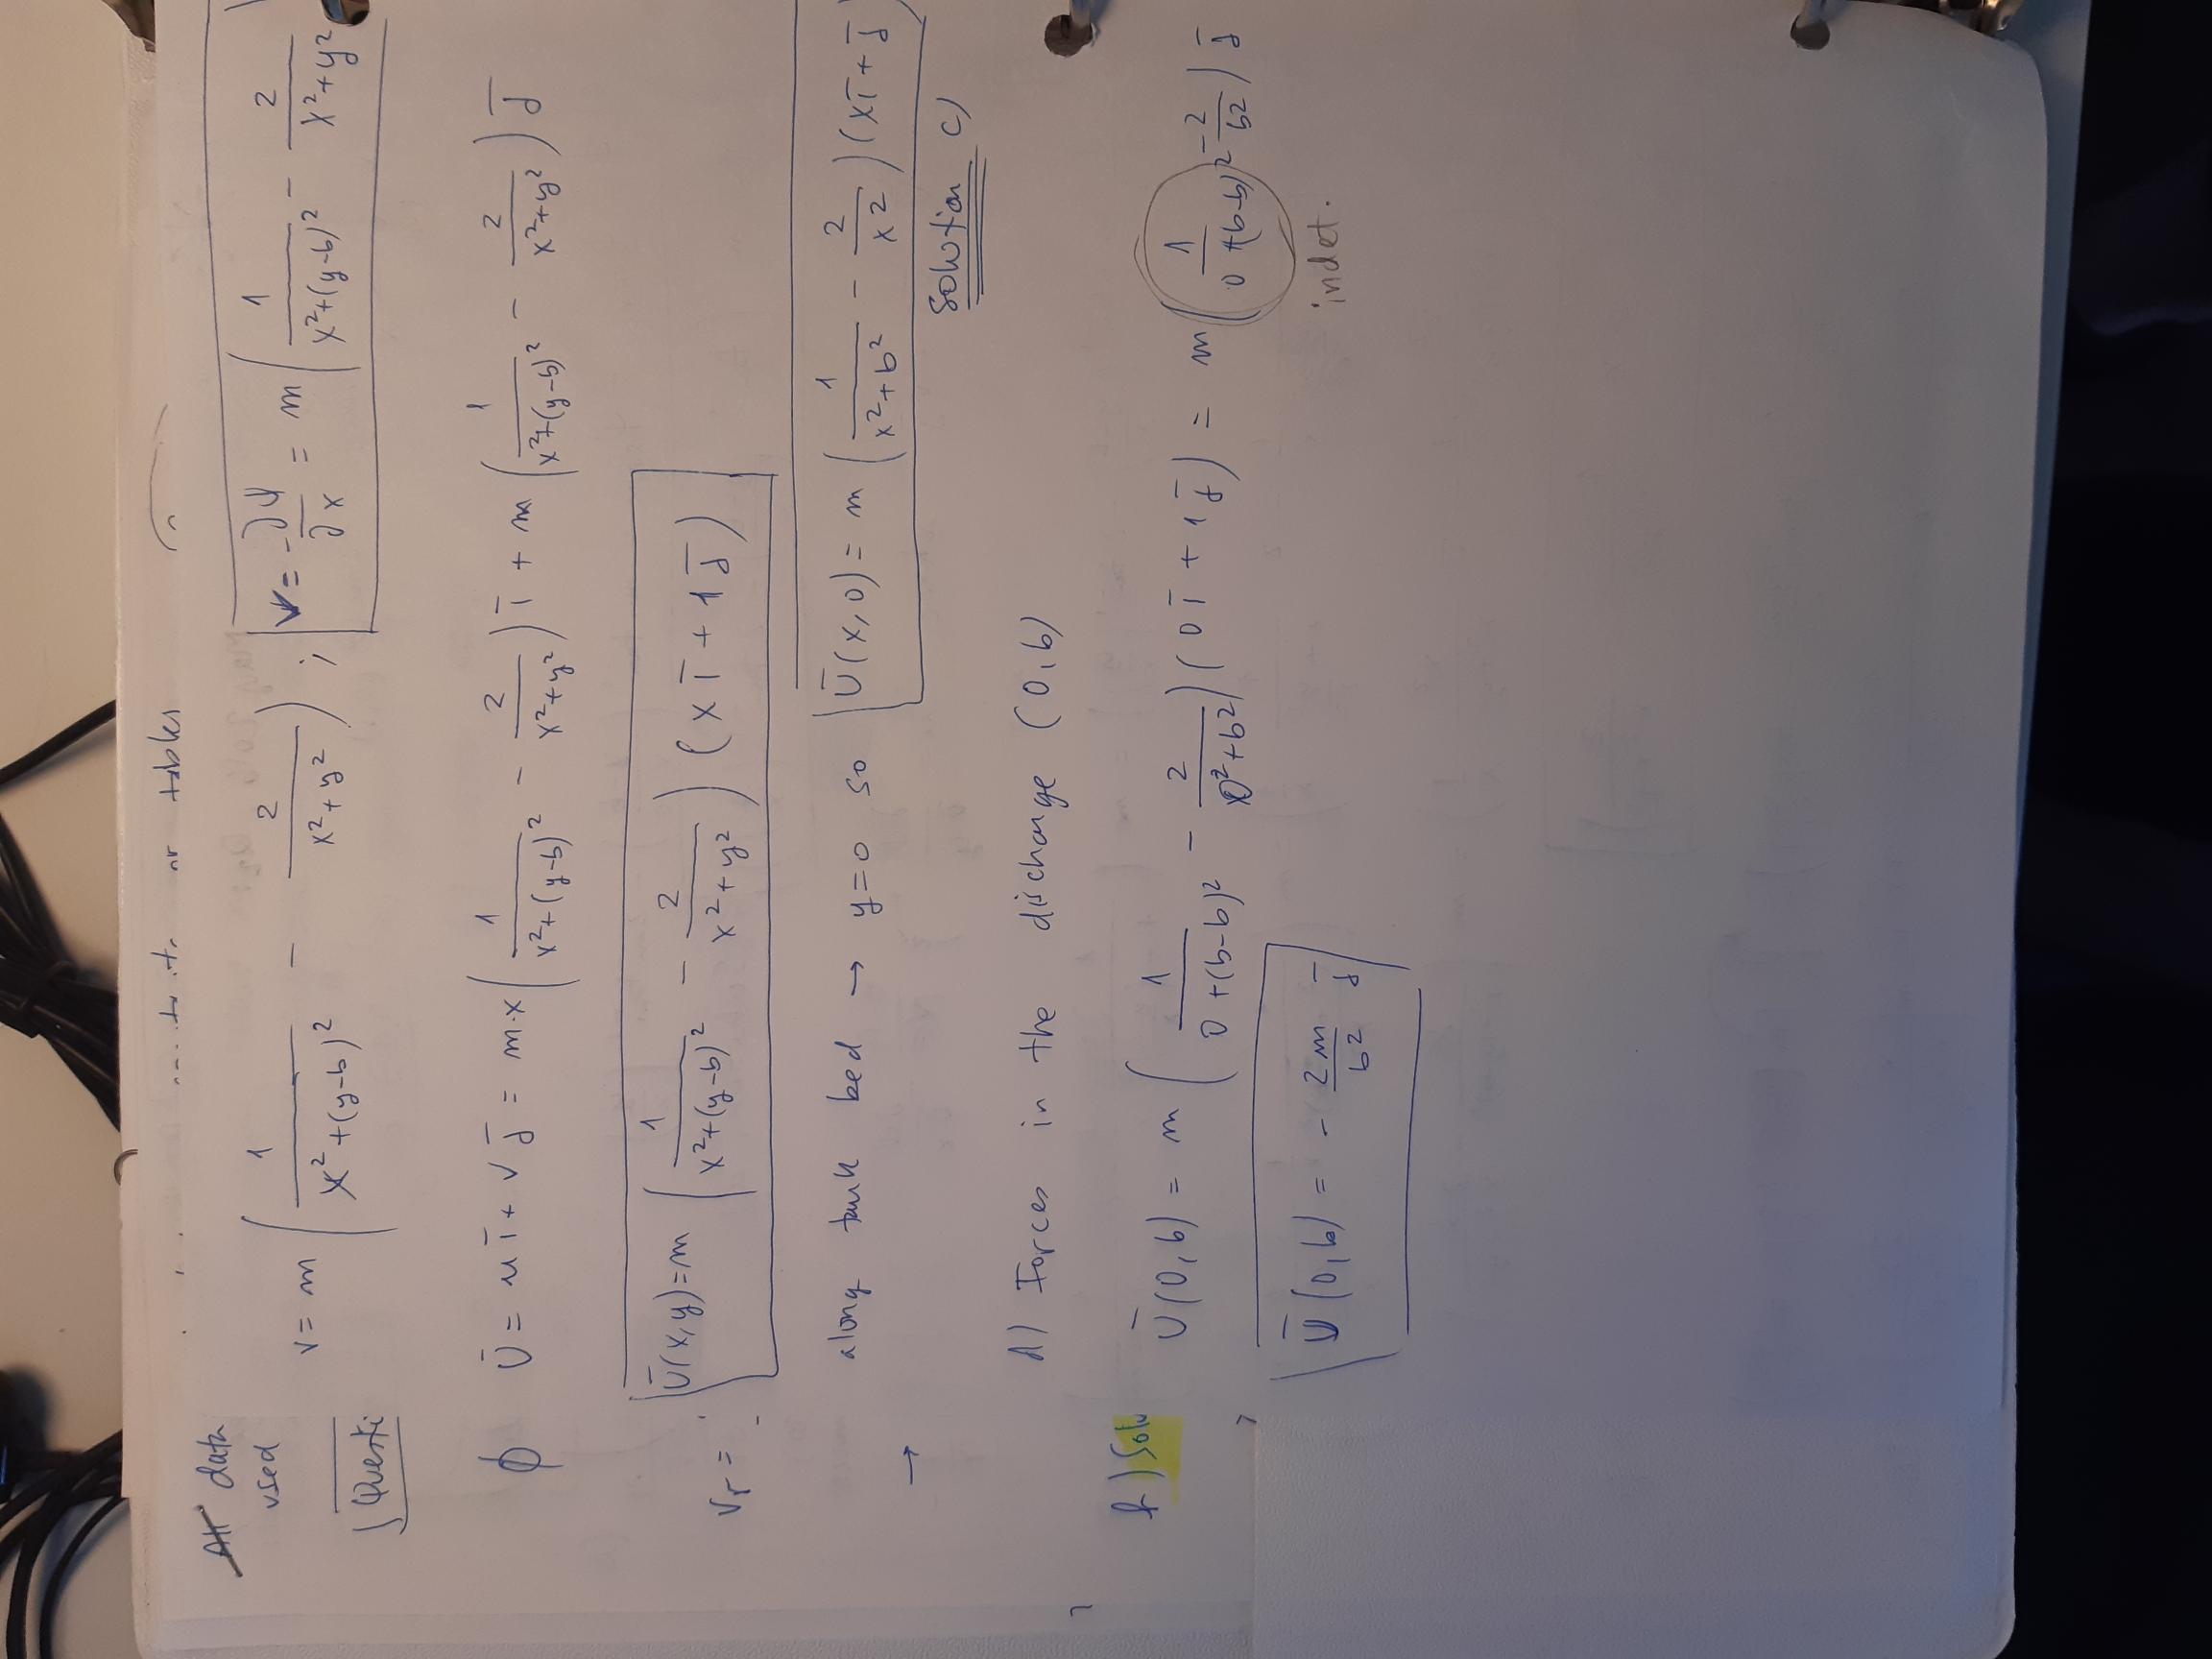 or tables
All data
used
Questi
v = m ( 1 / (x² + (y-b)²) - 2 / (x² + y²) ) ; v = -∂ψ/∂x = m ( 1 / (x² + (y-b)²) - 2 / (x² + y²)
ϕ
Ū = u ī + v j̄ = m·x ( 1 / (x² + (y-b)²) - 2 / (x² + y²) ) ī + m ( 1 / (x² + (y-b)²) - 2 / (x² + y²) ) j̄
vr =
Ū(x,y) = m ( 1 / (x² + (y-b)²) - 2 / (x² + y²) ) ( x ī + 1 j̄ )
along tank bed → y=0 so Ū(x,0) = m ( 1 / (x² + b²) - 2 / x² ) (x ī + j̄
→
Solution c)
d) Forces in the discharge (0,b)
f) Solu
Ū(0,b) = m ( 1 / (0 + (b-b)²) - 2 / (0² + b²) ) ( 0 ī + 1 j̄ ) = m ( 1 / (0 + (b-b)²) - 2 / b² ) j̄
indet.
Ū(0,b) = - 2m / b² j̄